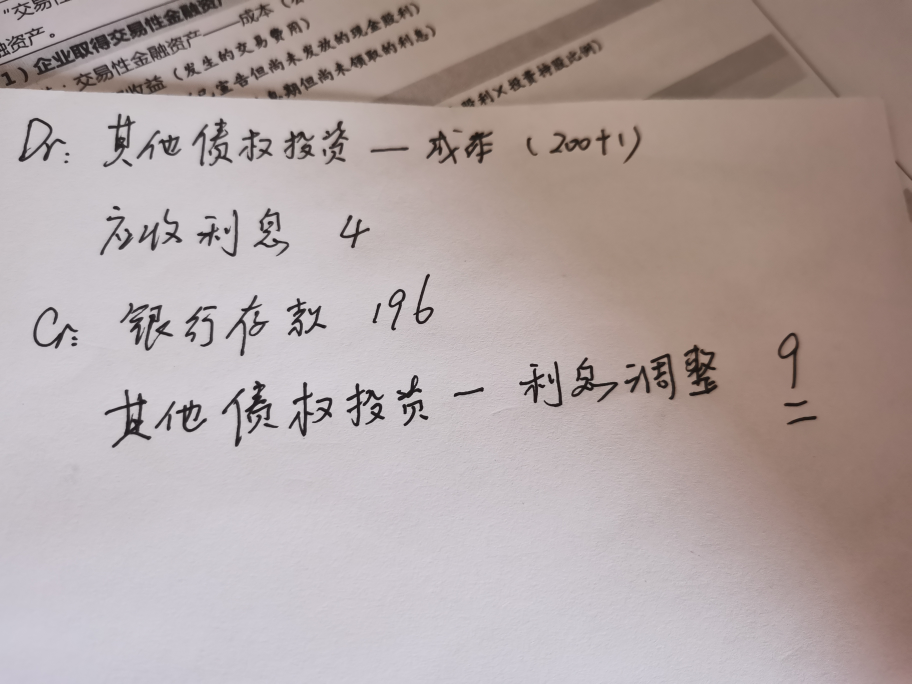 "交易
融资产。
1）企业取得交易性金融资产
：交易性金融资产——成本（
收益（发生的交易费用）
宣告但尚未发放的现金股利）
息期但尚未领取的利息）
股利×投资持股比例）
Dr: 其他债权投资 — 成本 (200+1)
应收利息 4
Cr: 银行存款 196
其他债权投资 — 利息调整 9